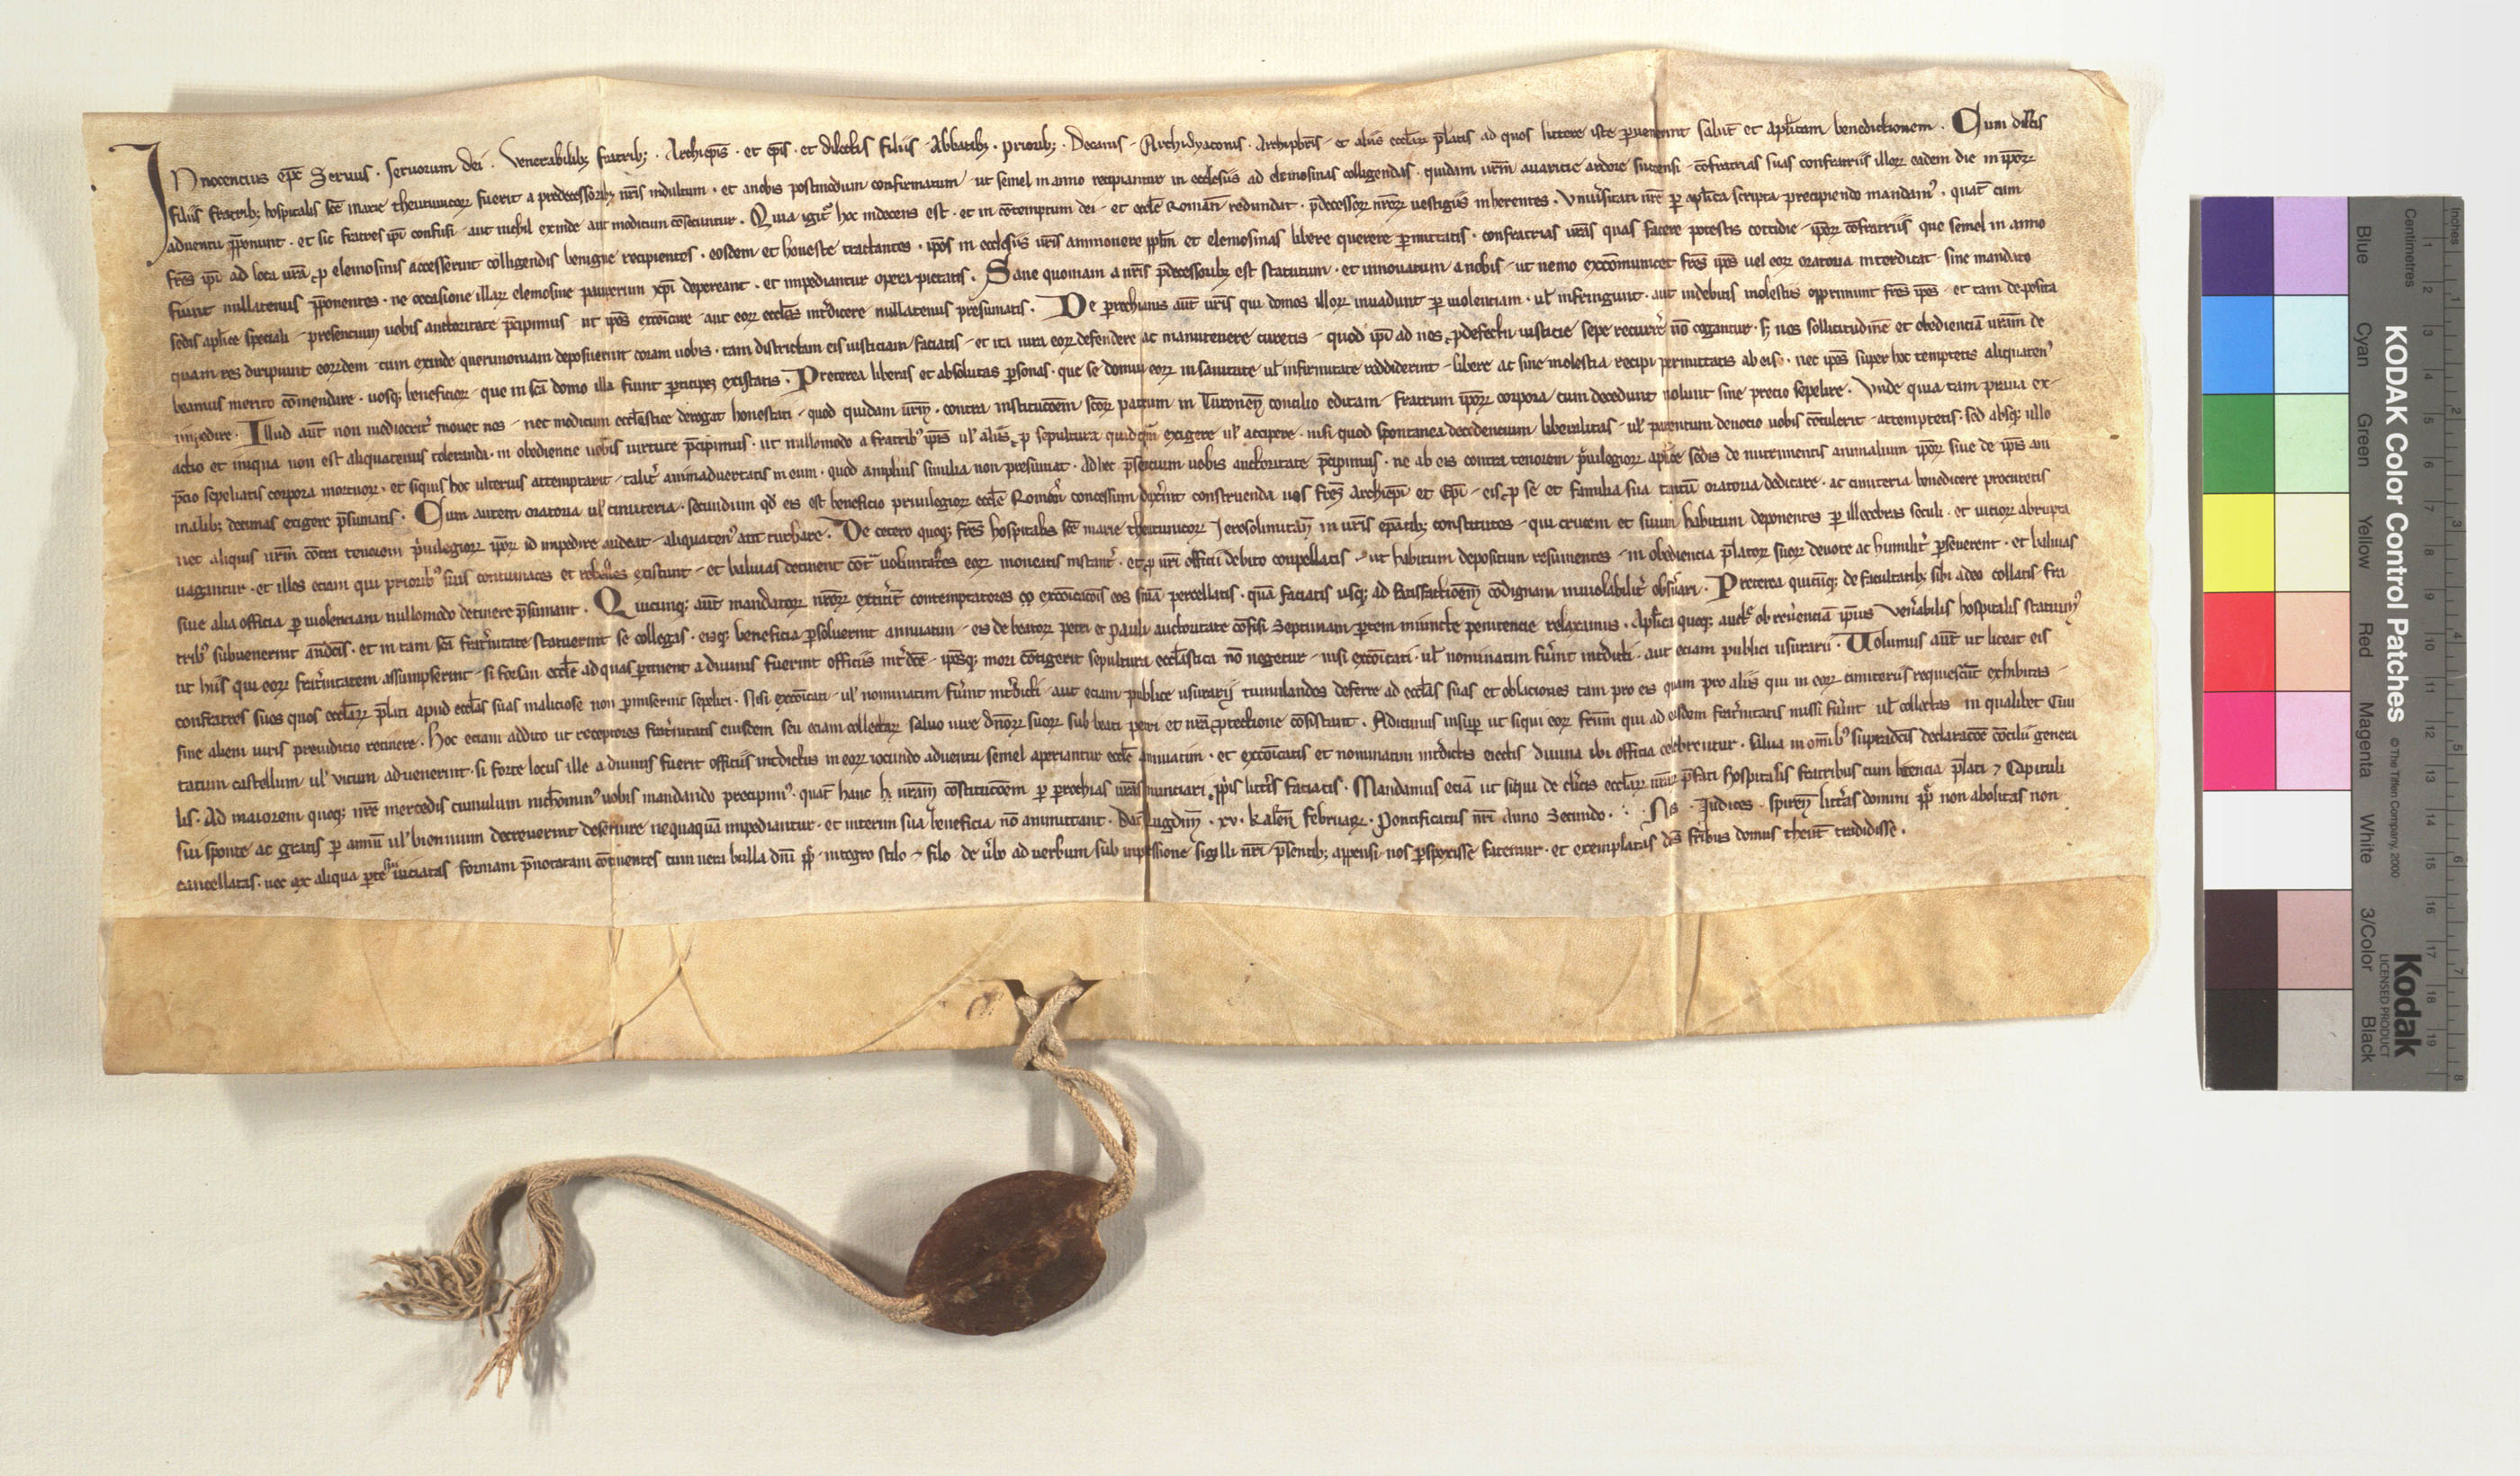 Innocencius epc̄ Seruus · seruorum dei · Venerabilibȝ fratribȝ · Archiep̄is · et ep̄is · et dilectis filiis Abbatibȝ · prioribȝ · Decanis Archidyaconis · Archipbr̄is et aliis eccl̄iarꝝ p̄latis ad quos littere iste ꝑuenerint salut̄ et apl̄icam benedictionem · Cum dilc̄is
filiis fratribȝ hospitalis sc̄e marie theutunicorꝝ fuerit a predecessoribȝ nr̄is indultum · et anobis postmodum confirmatum ut semel in anno recipiantur in ecclesiis ad elemosinas colligendas · quidam ur̄m auaricie ardore succensi cōfratrias suas confratriis illorꝝ eadem die in ip̄orꝝ
aduentu p̄ponunt · et sic fratres ip̄i confusi aut nichil exinde aut modicum cōsecuntur · Quia igit̄ hoc indecens est · et in cōtemptum dei et eccl̄e Roman̄ redundat · p̄decessorꝝ nr̄orꝝ uestigiis inherentes · Vniu̓sitati ur̄e ꝑ apl̄ica scripta precipiendo mandam᷒ · quat̄ cum
fr̄es ip̄i ad loca ur̄a ꝓ elemosinis accesserint colligendis benigne recipientes · eosdem et honeste tractantes · ip̄os in ecclesiis ur̄is ammonere pp̄lm̄ et elemosinas libere querere ꝑmittatis · confratrias ur̄as quas facere potestis cottidie ip̄orꝝ cōfratriis que semel in anno
fiunt nullatenus p̄ponentes · ne occasione illarꝝ elemosine pauperum xp̄i depereant · et impediantur opera pietatis · Sane quoniam a nr̄is p̄decessoribȝ est statutum · et innouatum a nobis ut nemo excōmunicet fr̄es ip̄os uel eorꝝ oratoria interdicat sine mandato
sedis apl̄ice speciali presencium uobis auctoritate p̄cipimus ut ip̄os excōicare aut eorꝝ eccl̄ias int̓dicere nullatenus presumatis · De ꝑrochianis aut̄ ur̄is qui domos illorꝝ inuadunt ꝑ uiolenciam · ul̄ infringunt · aut indebitis molestiis opprimunt fr̄es ip̄os et tam deposita
quam res diripiunt eorūdem cum exinde querimoniam deposuerint coram uobis · tam districtam eis iusticiam faciatis et ita iura eorꝝ defendere ac manutenere curetis quod ip̄i ad nos ꝓ defectu iusticie sepe recurr̓e nō cogantur · sȝ nos sollicitudinē et obedienciā ur̄am de
beamus merito cōmendare · uosqȝ beneficiorꝝ que in sc̄a domo illa fiunt ꝑticipes existatis · Preterea liberas et absolutas ꝑsonas que se domui eorꝝ in sanitate ul̄ infirmitate reddiderint libere ac sine molestia recipi permittatis ab eis · nec ip̄os super hoc temptetis aliquaten᷒
impedire · Illud aut̄ non mediocrit̓ mouet nos nec modicum eccl̄iastice derogat honestati quod quidam ur̄m · contra institucōem sc̄orꝝ patrum in Turonen̄ concilio editam fratrum ip̄orꝝ corpora cum decedunt nolunt sine precio sepelire · Vnde quia tam praua ex
actio et iniqua non est aliquatenus toleranda · in obediencie uobis uirtute p̄cipimus · ut nullomodo a fratrib᷒ ip̄is ul̄ aliis ꝓ sepultura quidqm̄ exigere ul̄ accipere · nisi quod spontanea decedencium liberalitas ul̄ parentum deuocio uobis cōtulerit attemptetis · sed absqȝ ullo
p̄cio sepeliatis corpora mortuorꝝ · et siquis hoc ulterius attemptarit talit̓ animaduertatis in eum · quod amplius similia non presumat · Adhec p̄sencium uobis auctoritate p̄cipimus · ne ab eis contra tenorem p̓uilegiorꝝ aplīce sedis de nutrimentis animalium ip̄orꝝ siue de ip̄is ani
malibȝ decimas exigere p̄sumatis · Cum autem oratoria ul̄ cimiteria · secundum qd̄ eis est beneficio priuilegiorꝝ eccl̄e Roman̄ concessum dux̓int construenda uos fr̄es Archiep̄i et Ep̄i eis ꝓ se et familia sua tantū oratoria dedicare · ac cimiteria benedicere procuretis
nec aliquis ur̄m cōtra tenorem p̓uilegiorꝝ ip̄orꝝ id impedire audeat aliquaten᷒ aut turbare · De cetero quoqȝ fr̄es hospitalis sc̄e marie theutunicorꝝ Ierosolimitan̄ in ur̄is ep̄atibȝ constitutos qui crucem et suum habitum deponentes ꝑ illecebras seculi · et uiciorꝝ abrupta
uagantur · et illos eciam qui priorib᷒ suis contumaces et rebelles existunt et baliuas detinent cōt̓ uoluntates eorꝝ moneatis instant̓ · et ꝓ ur̄i officii debito conpellatis · ut habitum depositum resumentes in obediencia p̄latorꝝ suorꝝ deuote ac humilit̓ ꝑseuerent · et baliuas
siue alia officia ꝑ uiolenciam nullomodo detinere p̄sumant · Quicunqȝ aut̄ mandatorꝝ nr̄orꝝ extit̓int contemptatores eo excōicacōis eos snīa percellatis · quā faciatis usqȝ ad satisfactioēm cōdignam inuiolabilit̓ obs̓uari · Preterea quicūqȝ de facultatibȝ sibi adeo collatis fra
trib᷒ subuenerint an̄dc̄is · et in tam sc̄a frat̓nitate statuerint se collegas · eisqȝ beneficia ꝑsoluerint annuatim eis de beatorꝝ petri et Pauli auctoritate cōfisi Septimam ꝑtem iniuncte penitencie relaxamus · Apl̄ica quoqȝ auct̓e ob reu̓enciā ip̄ius Ven̓abilis hospitalis statuim᷒
ut hiis qui eorꝝ frat̓nitatem assumpserint si forsan eccl̄e ad quas ꝑtinent a diuinis fuerint officiis int̓dc̄e ip̄osqȝ mori cōtigerit sepultura eccl̄iastica nō negetur nisi excōicati · ul̄ nominatim fu̓int int̓dicti · aut eciam publici usurarii · Uolumus aut̄ ut liceat eis
confratres suos quos eccl̄iarꝝ p̄lati apud eccl̄ias suas maliciose non ꝑmiserint sepeliri · Nisi excōicati ul̄ nominatim fu̓int int̓dicti aut eciam publice usurarij tumulandos deferre ad eccl̄ias suas et oblaciones tam pro eis quam pro aliis qui in eorꝝ cimiteriis requiescūt exhibitas
sine alieni iuris preiudicio retinere · Hoc eciam addito ut receptores frat̓nitatis eiusdem seu eciam collectarꝝ saluo iure dn̄orꝝ suorꝝ sub beati petri et nr̄a ꝓtectione cōsistant · Adicimus insup̱ ut siqui eorꝝ fr̄um qui ad eisdem frat̓nitatis missi fu̓int ul̄ collectas in qualibet Ciui
tatum castellum ul̄ uicum aduenerint · si forte locus ille a diuinis fuerit officiis int̓dictus in eorꝝ iocundo aduentu semel aperiantur eccl̄e annuatim · et excōicatis et nominatim int̓dictis eiectis diuina ibi officia celebrentur · salua in om̄ib᷒ supradc̄is declaracōe cōcilii genera
lis · Ad maiorem quoqȝ ur̄e mercedis cumulum nichomin᷒ uobis mandando precipim᷒ · quat̄ hanc ur̄am cōstitucōem ꝑ ꝑrochias ur̄as nunciari ꝓpis litt̓is faciatis · Mandamus eciā ut siqui de cl̓icis eccl̄iarꝝ ur̄arꝝ p̄fati hospitalis fratribus cum licencia p̄lati ⁊ Capituli
sui sponte ac gratis ꝑ annū ul̄ biennium decreuerint deseruire nequaquā impediantur · et interim sua beneficia nō amittant · Dat̄ Lugdun̄ · xv · Kalen̄ Februarꝝ · Pontificatus nr̄i Anno Secundo · Nos Iudices Spiren̄ litt̓as domini pp̄ non abolitas non
cancellatas · nec ex aliqua ꝑte sui uiciatas formam p̄notatam cōtinentes cum uera bulla dn̄i pp̄ integro stilo ⁊ filo de u̓bo ad verbum sub inpressione sigilli nr̄i p̄sentibȝ appensi nos ꝑspexisse fatemur · et exemplatas dc̄is fr̄ibus domus theut̄ tradidisse ·
KODAK Color Control Patches © The Tiffen Company, 2000
Kodak
LICENSED PRODUCT
Blue Cyan Green Yellow Red Magenta White 3/Color Black
Centimetres 1 2 3 4 5 6 7 8 9 10 11 12 13 14 15 16 17 18 19
Inches 1 2 3 4 5 6 7 8